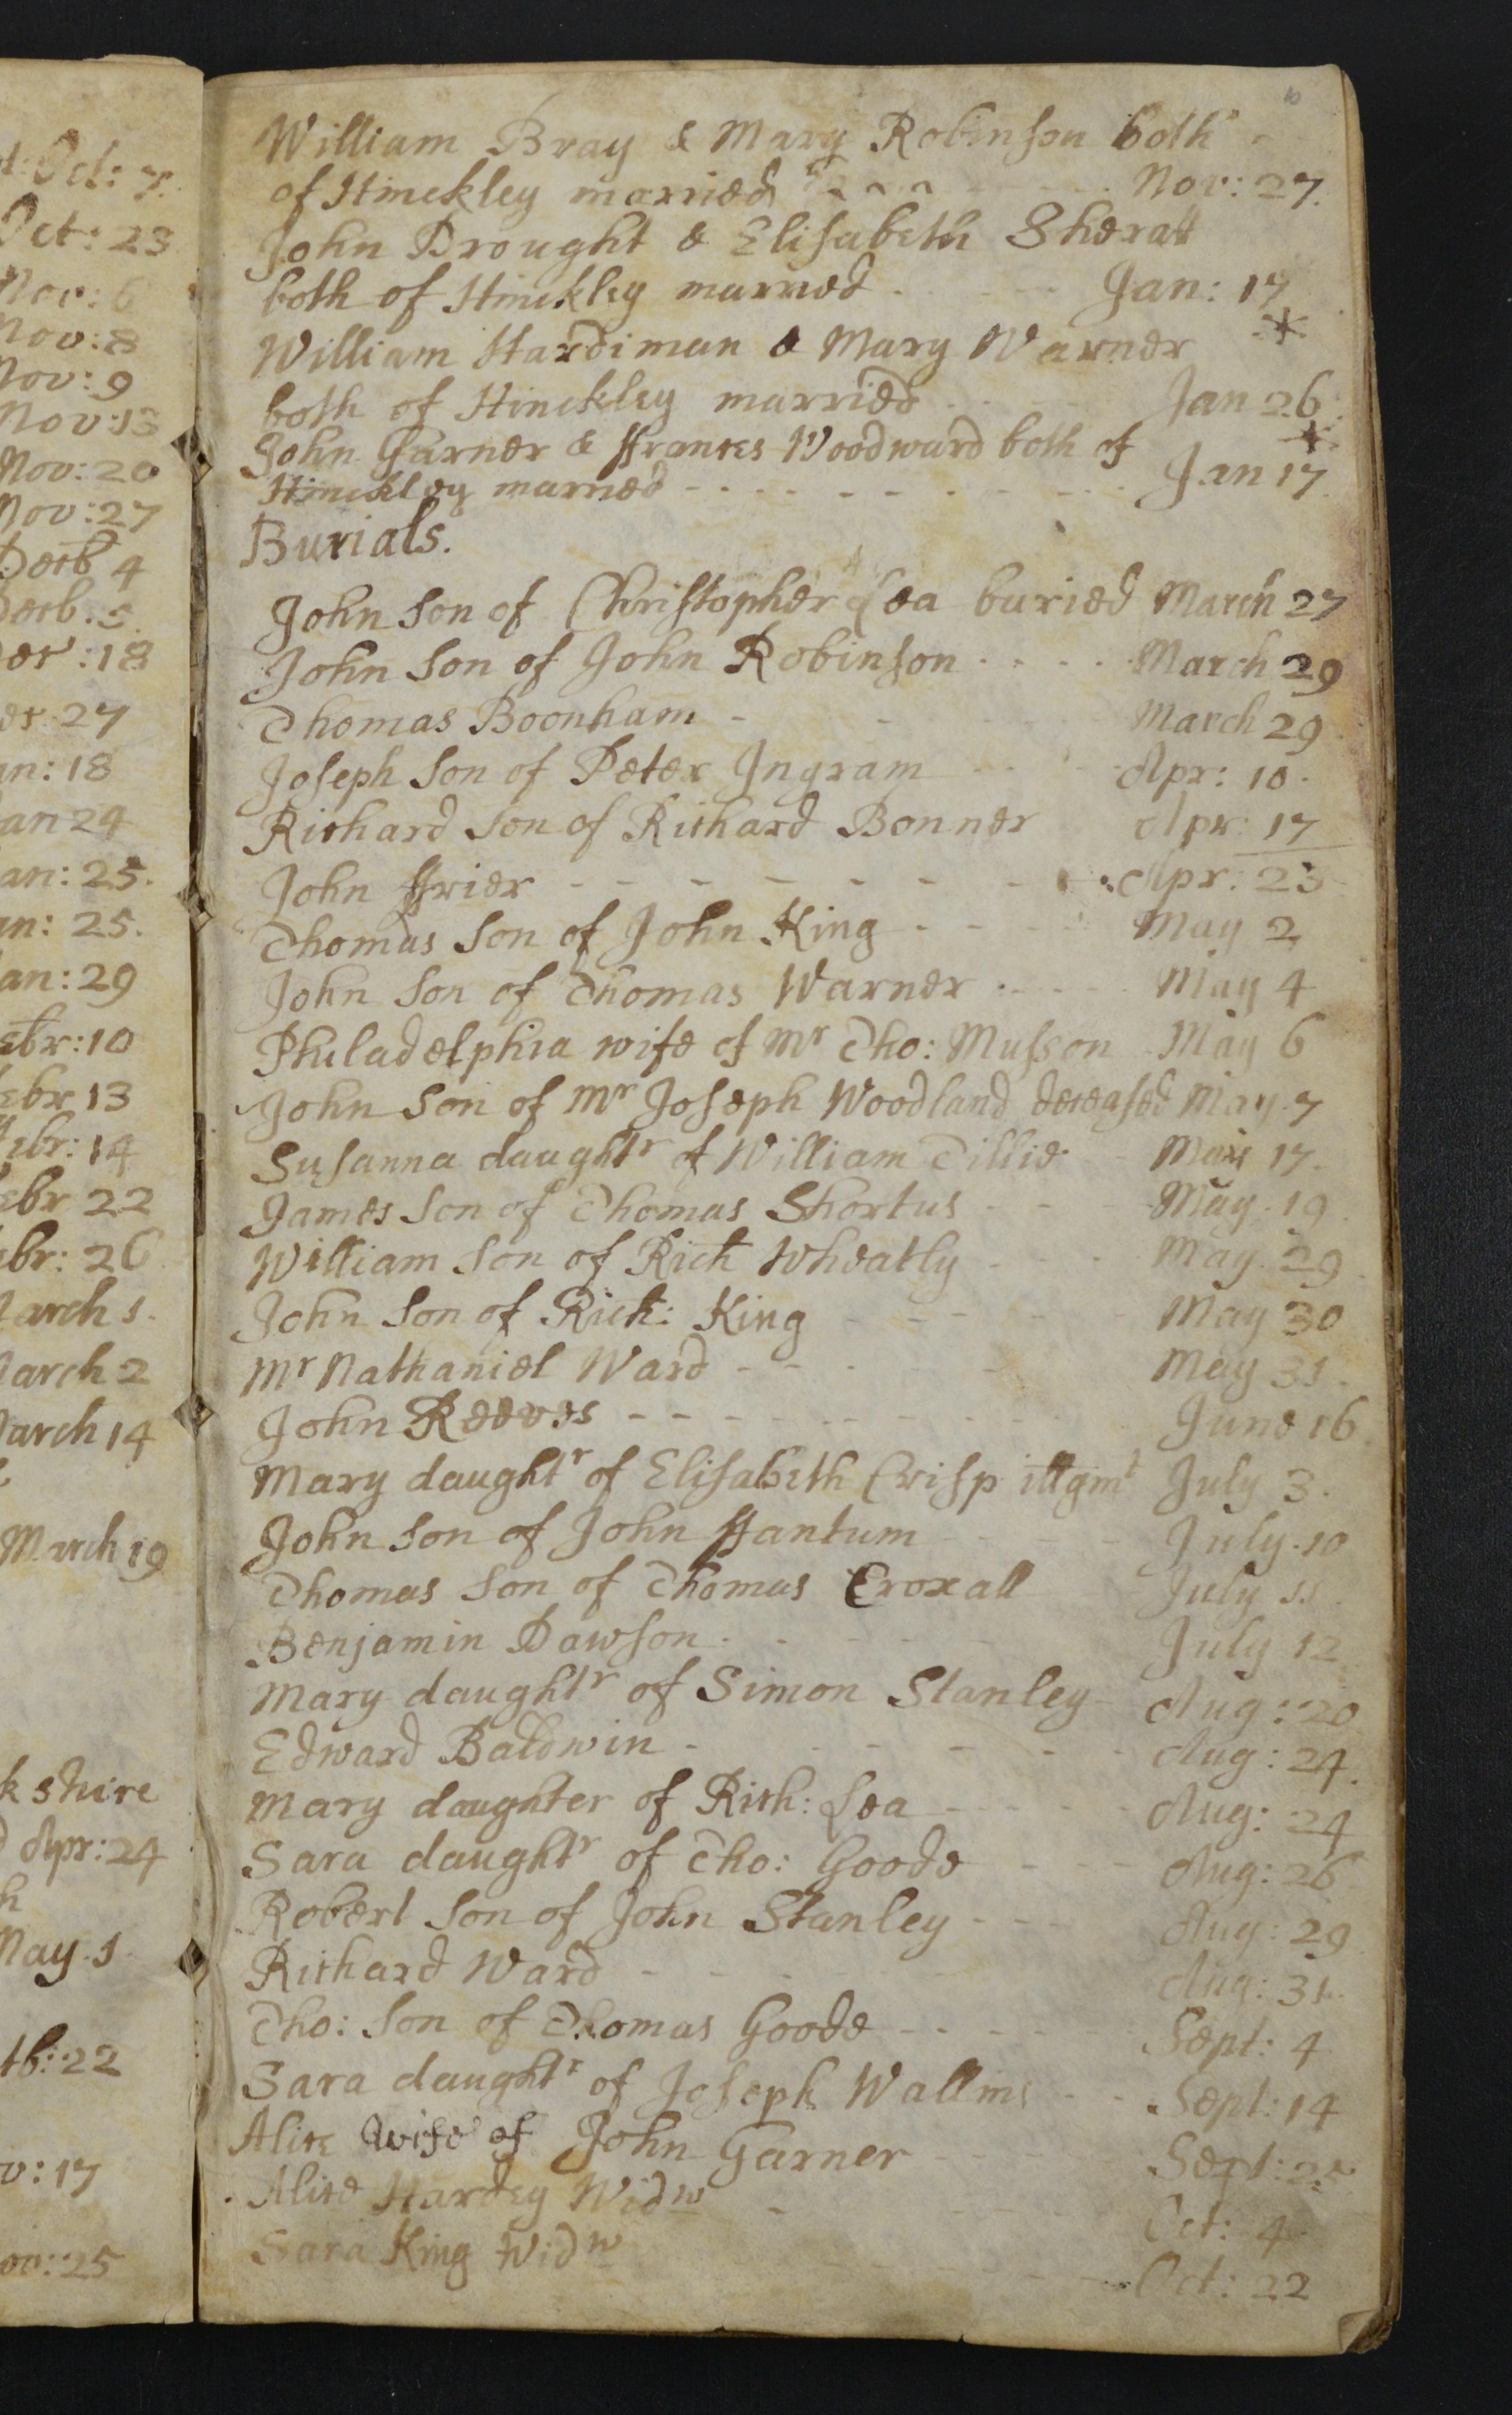 t: Oct: 7.
Oct: 23
Nov: 6
Nov: 8
Nov: 9
Nov: 13
Nov: 20
Nov: 27
Decb 4
Decb. 5
18
27
an: 18
an 24
an: 25.
an: 25.
an: 29
ebr: 10
ebr 13
ebr: 14
ebr 22
ebr: 26
March 1.
March 2
March 14
March 19
kshire
d Apr: 24
h
May. 1
tb: 22
v: 17
ov: 25
10
William Bray & Mary Robinson both
of Hinckley married Nov: 27.
John Drought & Elisabeth Sheratt
both of Hinckley married Jan: 17
William Hardiman & Mary Warner *
both of Hinckley married Jan 26
John Garner & ffrances Woodward both of *
Hinckley married Jan 17
Burials.
John son of Christopher Lea buried March 27
John son of John Robinson March 29
Thomas Boonham March 29
Joseph son of Peter Ingram Apr: 10
Richard son of Richard Bonner Apr: 17
John ffrier Apr: 23
Thomas son of John King May 2
John son of Thomas Warner May 4
Philadelphia wife of Mr Tho: Musson May 6
John son of Mr Joseph Woodland deceased May 7
Susanna daughtr of William Tillie May 17
James son of Thomas Shortus May 19
William son of Rich Wheatly May 29
John son of Rich: King May 30
Mr Nathaniel Ward May 31
John Reeves June 16
Mary daughtr of Elisabeth Crisp illgmt July 3
John son of John ffantum July 10
Thomas son of Thomas Croxall July 11
Benjamin Dawson July 12
Mary daughtr of Simon Stanley Aug: 20
Edward Baldwin Aug: 24
Mary daughter of Rich: Lea Aug: 24
Sara daughtr of Tho: Goode Aug: 26
Robert son of John Stanley Aug: 29
Richard Ward Aug: 31
Tho: son of Thomas Goode Sept: 4
Sara daughtr of Joseph Wallins Sept: 14
Alice wife of John Garner Sept: 25
Alice Hardey Widw Oct: 4
Sara King Widw Oct: 22